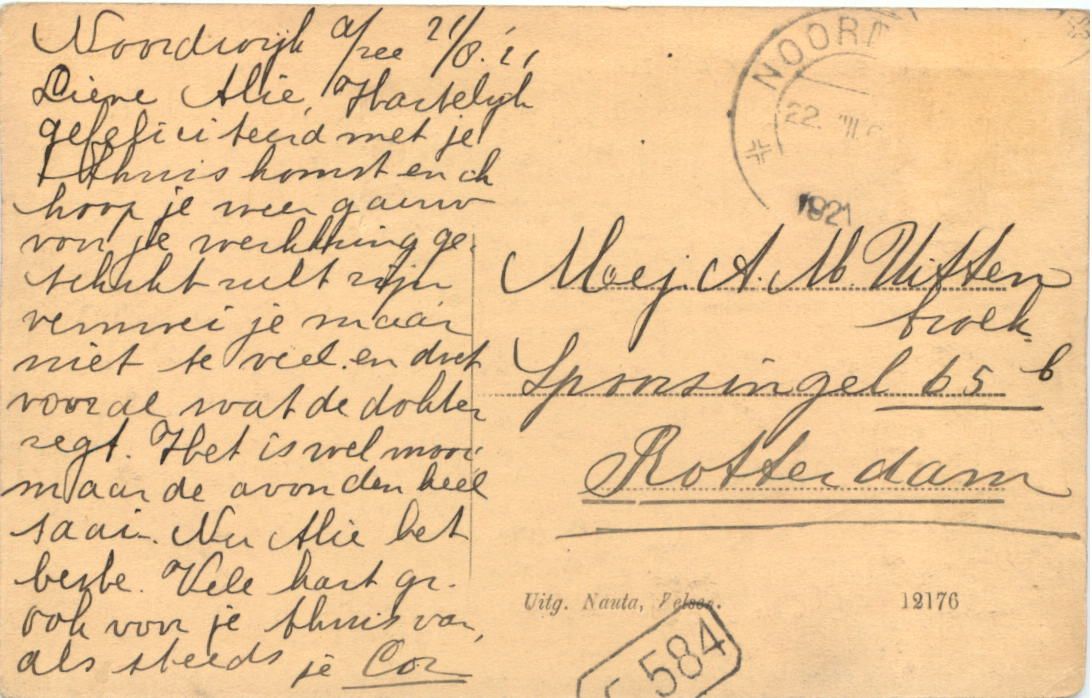 Noordwijk a/zee 21/8.'21
Lieve Alie, Hartelijk
gefeliciteerd met je
thuiskomst en ik
hoop je weer gauw
voor je werkkring ge-
schikt zult zijn
vermoei je maar
niet te veel. en doet
vooral wat de dokter
zegt. Het is wel mooi
maar de avonden heel
saai. Nu Alie het
beste. Vele hart gr.
ook voor je thuis van,
als steeds je Cor
NOORD
22. VIII.
1921
Mej. A. M. Uitten
broek.
Spoorsingel 65 b
Rotterdam
Uitg. Nauta, Velsen. 12176
584